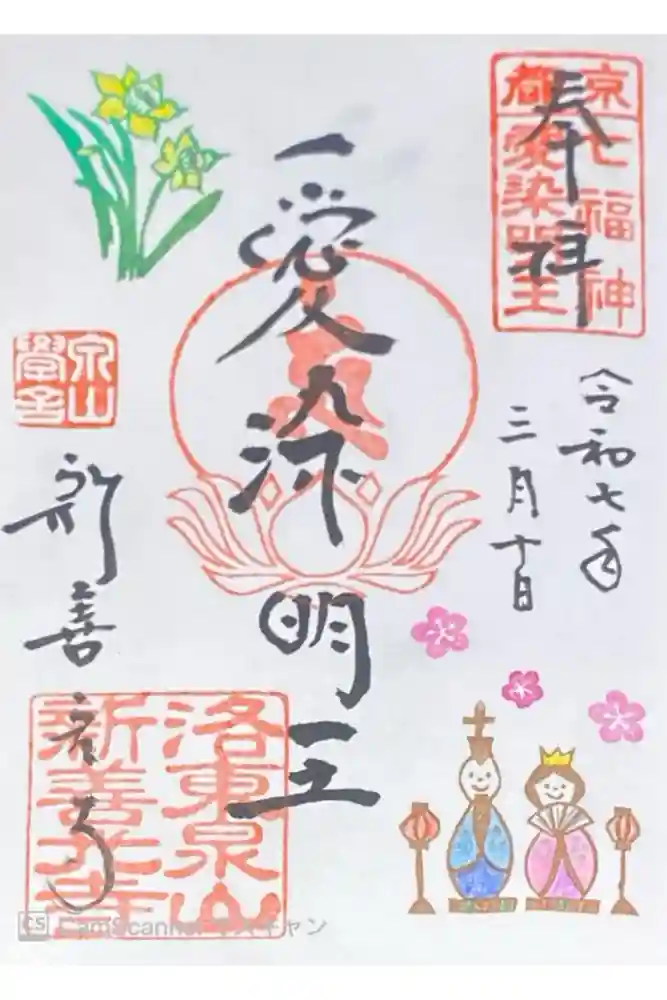 奉拝
京都
七福神
愛染明王
令和七年
三月十日
愛染明王
泉山
新善光寺
洛東泉山
新善光寺
CS CamScanner でスキャン